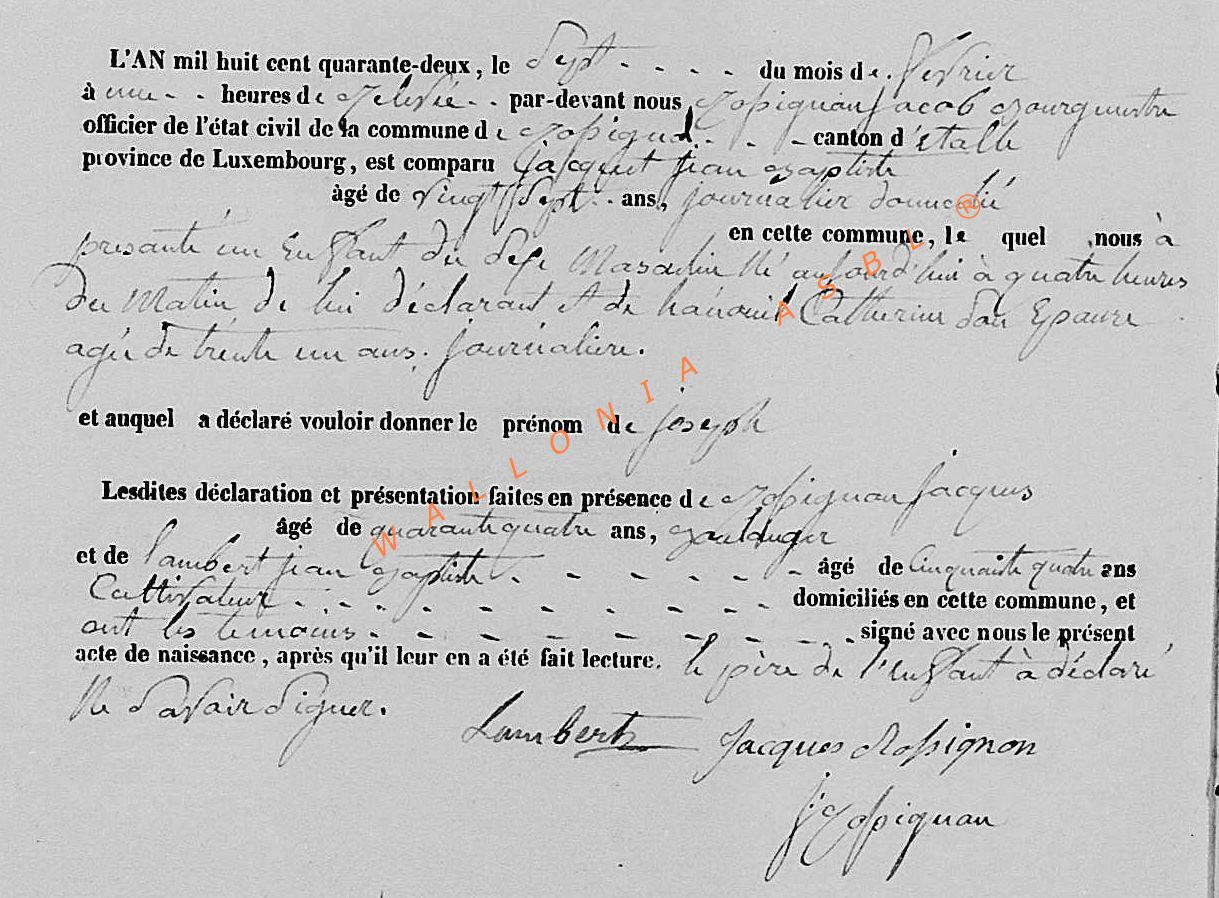 L'AN mil huit cent quarante-deux, le Sept - - - - du mois de. fevrier
à une - - heures de relevée - - par-devant nous Rossignon Jacob Bourgmestre
officier de l'état civil de la commune de Rossignol - - - canton d'étalle
province de Luxembourg, est comparu Jacquet jean Baptiste
âgé de vingt sept - - ans, journalier domicilié
en cette commune, le quel nous à
presanté un Enfant du sexe Masculin Né aujourd'hui à quatre heures
Du Matin de lui déclarant et de Catherine son Epouse
agée de trente un ans. journaliere.
et auquel a déclaré vouloir donner le prénom de joseph
Lesdites déclaration et présentation faites en présence de Rossignon Jacques
âgé de quarante quatre ans, Boulanger
et de lambert jean Baptiste - - - - - - - âgé de Cinquante quatre ans
Cultivateur - - - - - - - - - - domiciliés en cette commune, et
ont les temoins - - - - - - - - - signé avec nous le présent
acte de naissance, après qu'il leur en a été fait lecture. le père de l'enfant à déclaré
Ne savoir signer.
Lambert Jacques Rossignon
J Rossignon
WALLONIA ASBL ®